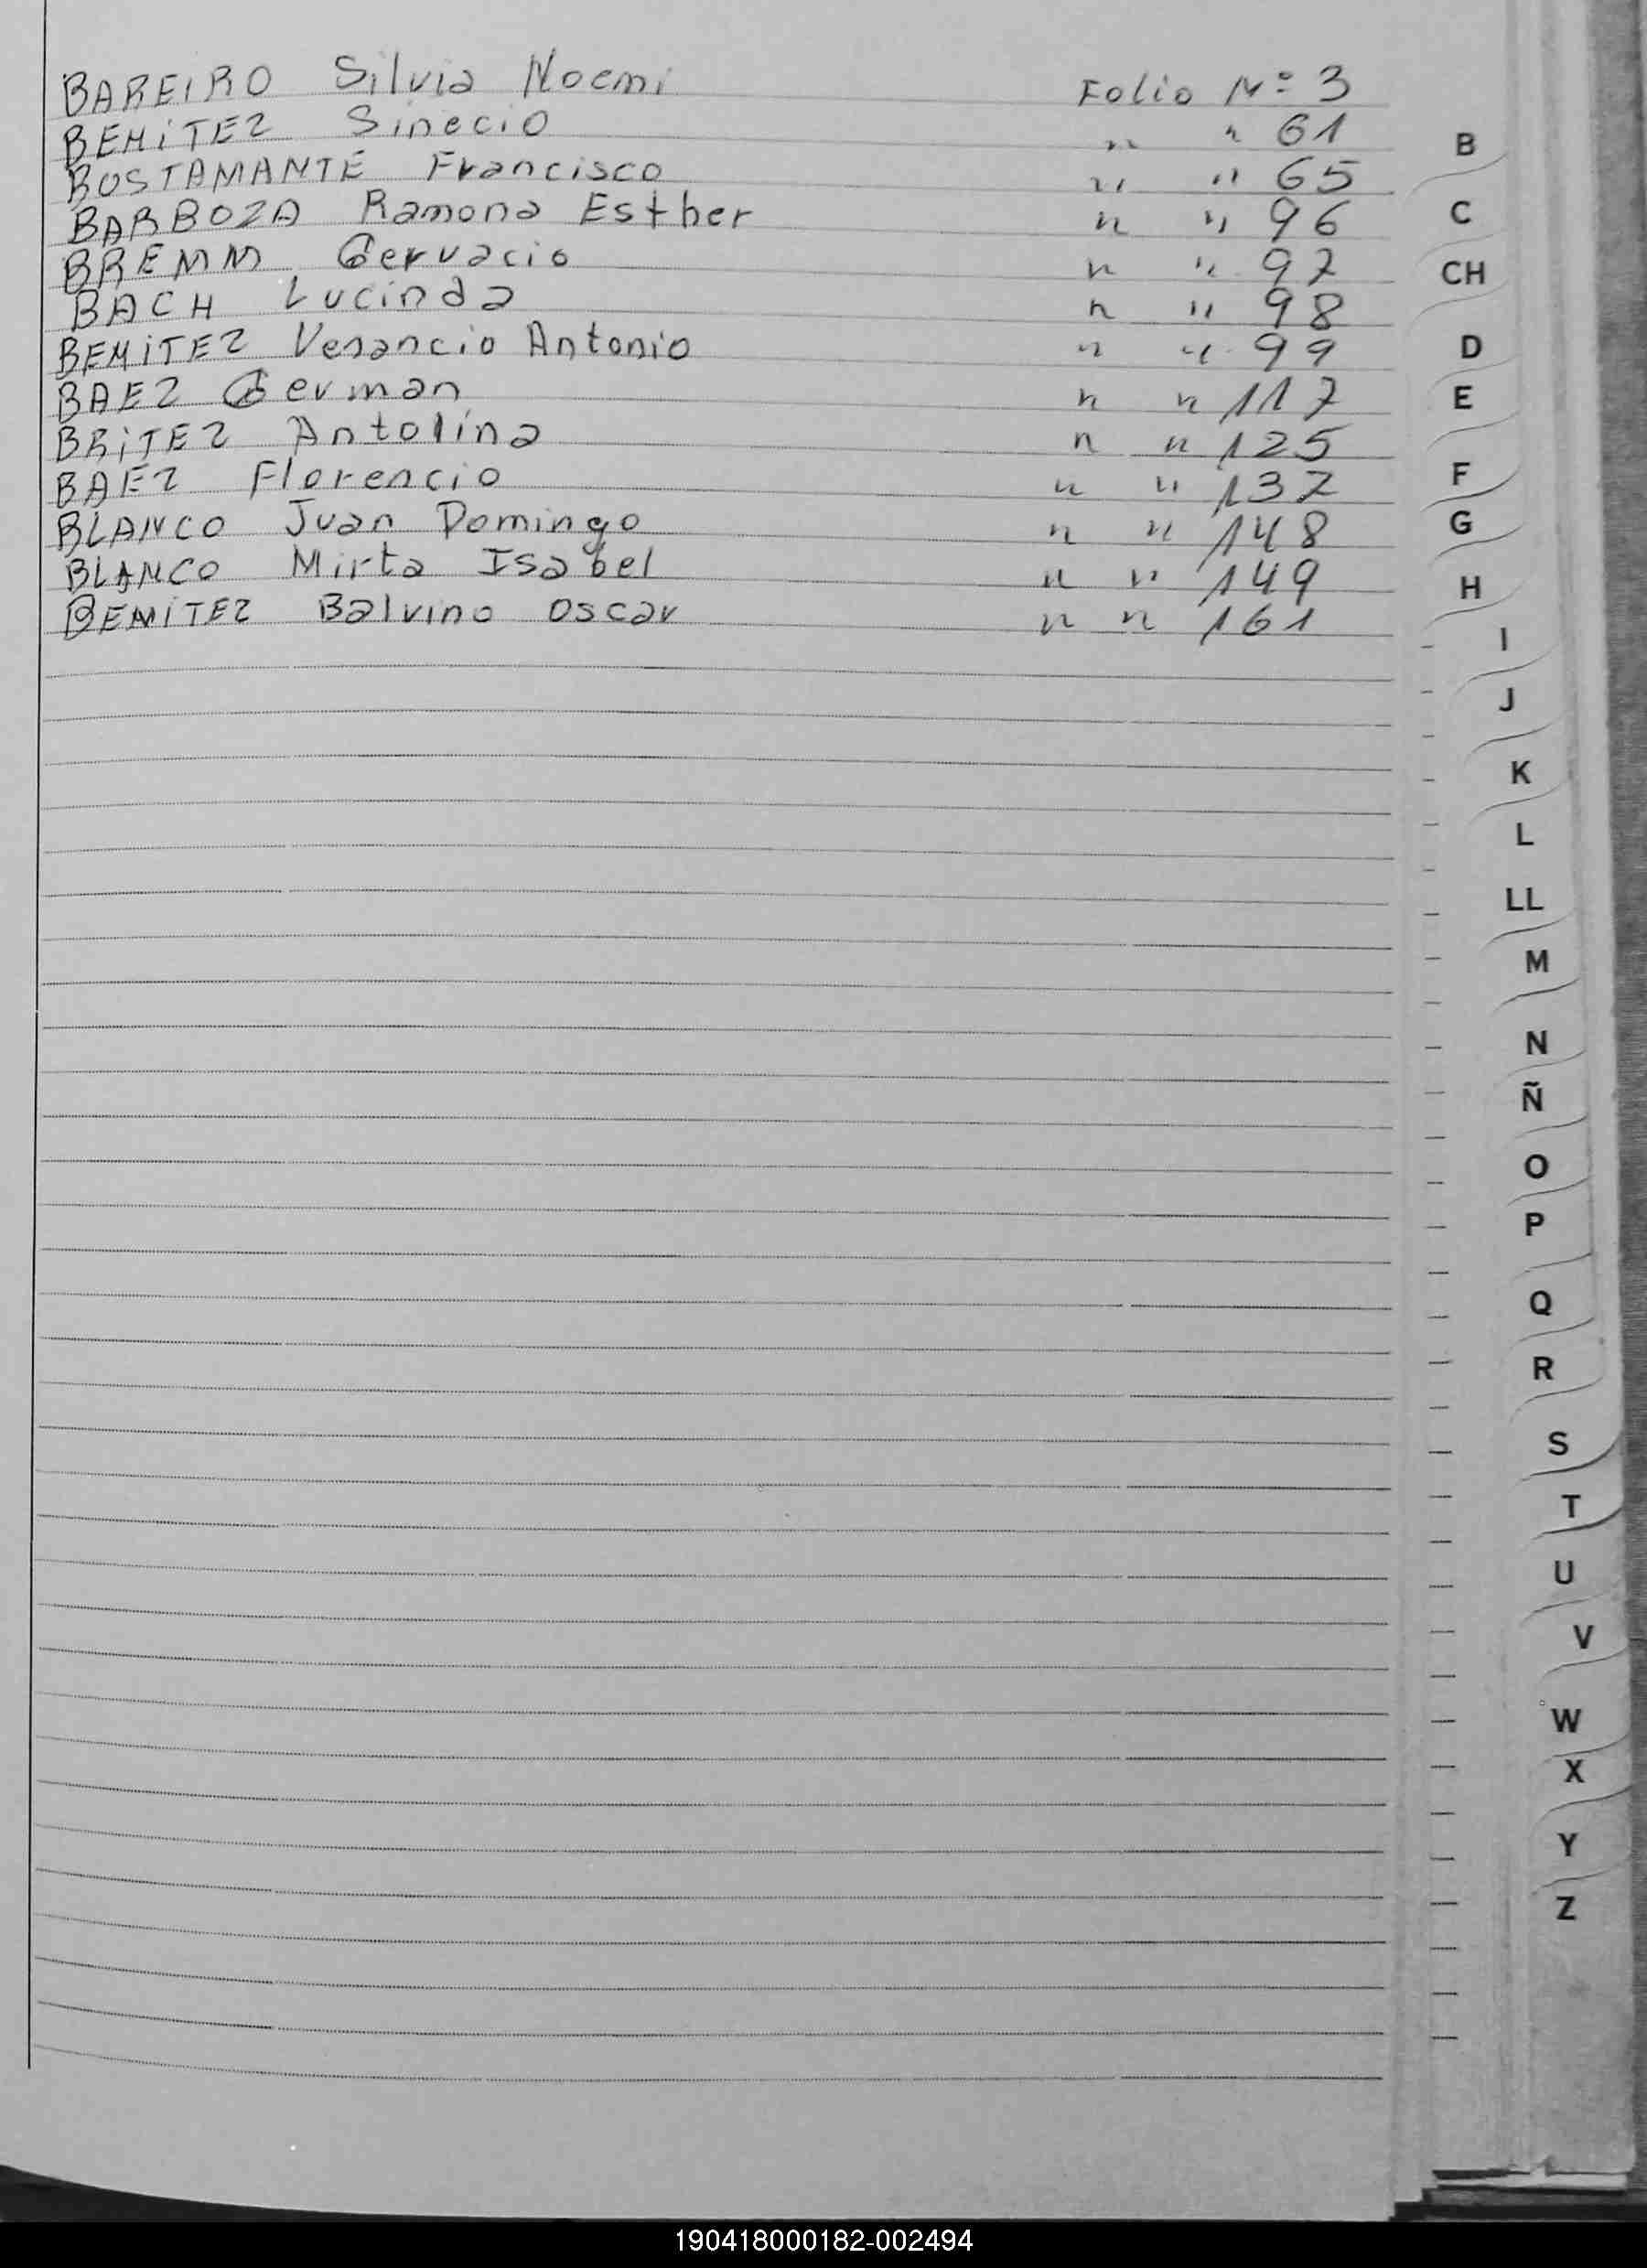 BAREIRO Silvia Noemi Folio Nº 3
BENITEZ Sinecio " " 61
BUSTAMANTE Francisco " " 65
BARBOZA Ramona Esther " " 96
BREMM Gervacio " " 97
BACH Lucinda " " 98
BENITEZ Venancio Antonio " " 99
BAEZ German " " 117
BRITEZ Antolina " " 125
BAEZ Florencio " " 137
BLANCO Juan Domingo " " 148
BLANCO Mirta Isabel " " 149
BENITEZ Balvino Oscar " " 161
B
C
CH
D
E
F
G
H
I
J
K
L
LL
M
N
Ñ
O
P
Q
R
S
T
U
V
W
X
Y
Z
190418000182-002494